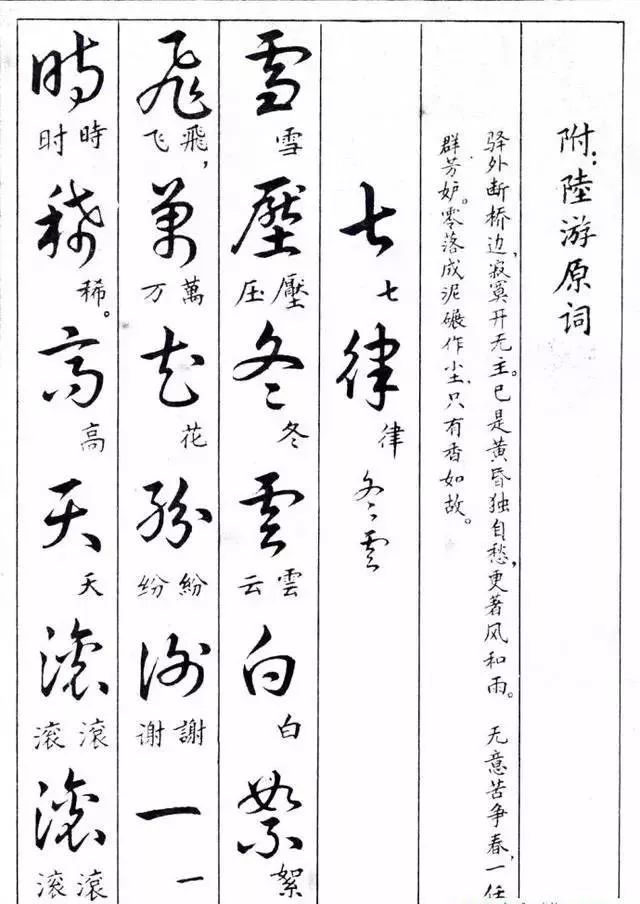 附:陸游原词
驿外断桥边,寂寞开无主。已是黄昏独自愁,更著风和雨。 无意苦争春,一任
群芳妒。零落成泥碾作尘,只有香如故。
七 七 律 律 冬雲
雪 雪 壓 壓 压 冬 冬 雲 雲 云 白 白 絮 絮
飛 飛, 飞 萬 萬 万 花 花 紛 紛 纷 謝 謝 谢 一 一
時 時 时 稀 稀。 高 高 天 天 滚 滾 滚 滚 滾 滚